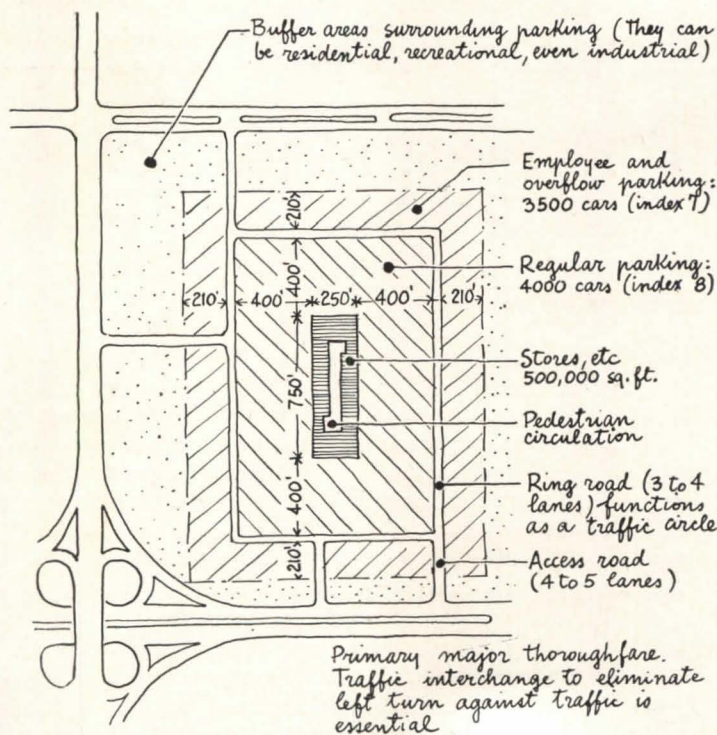 Buffer areas surrounding parking (They can
be residential, recreational, even industrial)
Employee and
overflow parking:
3500 cars (index 7)
210'
Regular parking:
4000 cars (index 8)
400'
210' 400' 250' 400' 210'
Stores, etc
500,000 sq. ft.
750'
Pedestrian
circulation
Ring road (3 to 4
lanes) functions
as a traffic circle
400'
Access road
(4 to 5 lanes)
210'
Primary major thoroughfare.
Traffic interchange to eliminate
left turn against traffic is
essential